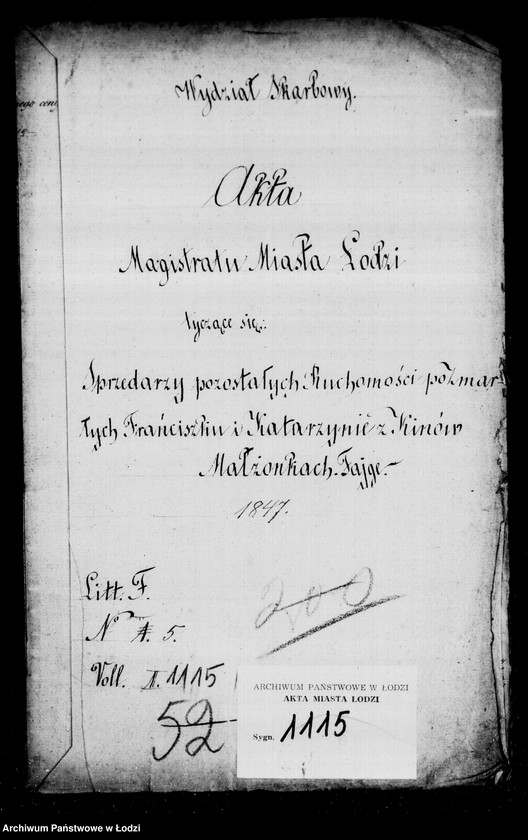 nego cen
Wydział Skarbowy.
Akta
Magistratu Miasta Łodzi
tyczące się:
Sprzedarzy pozostałych Ruchomości po Zmar
łych Frańciszku i Katarzynie z Kinów
Małżonkach Fajge.—
1847.
Litt. F.
200
Nº 4. 5.
Voll. II. 1115
52
ARCHIWUM PAŃSTWOWE W ŁODZI
AKTA MIASTA ŁODZI
Sygn. 1115
Archiwum Państwowe w Łodzi